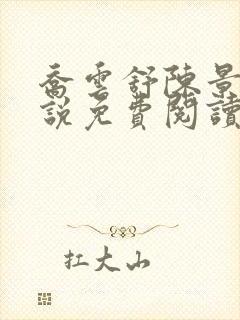 喬雲舒陳景
說免費閱讀
扛大山